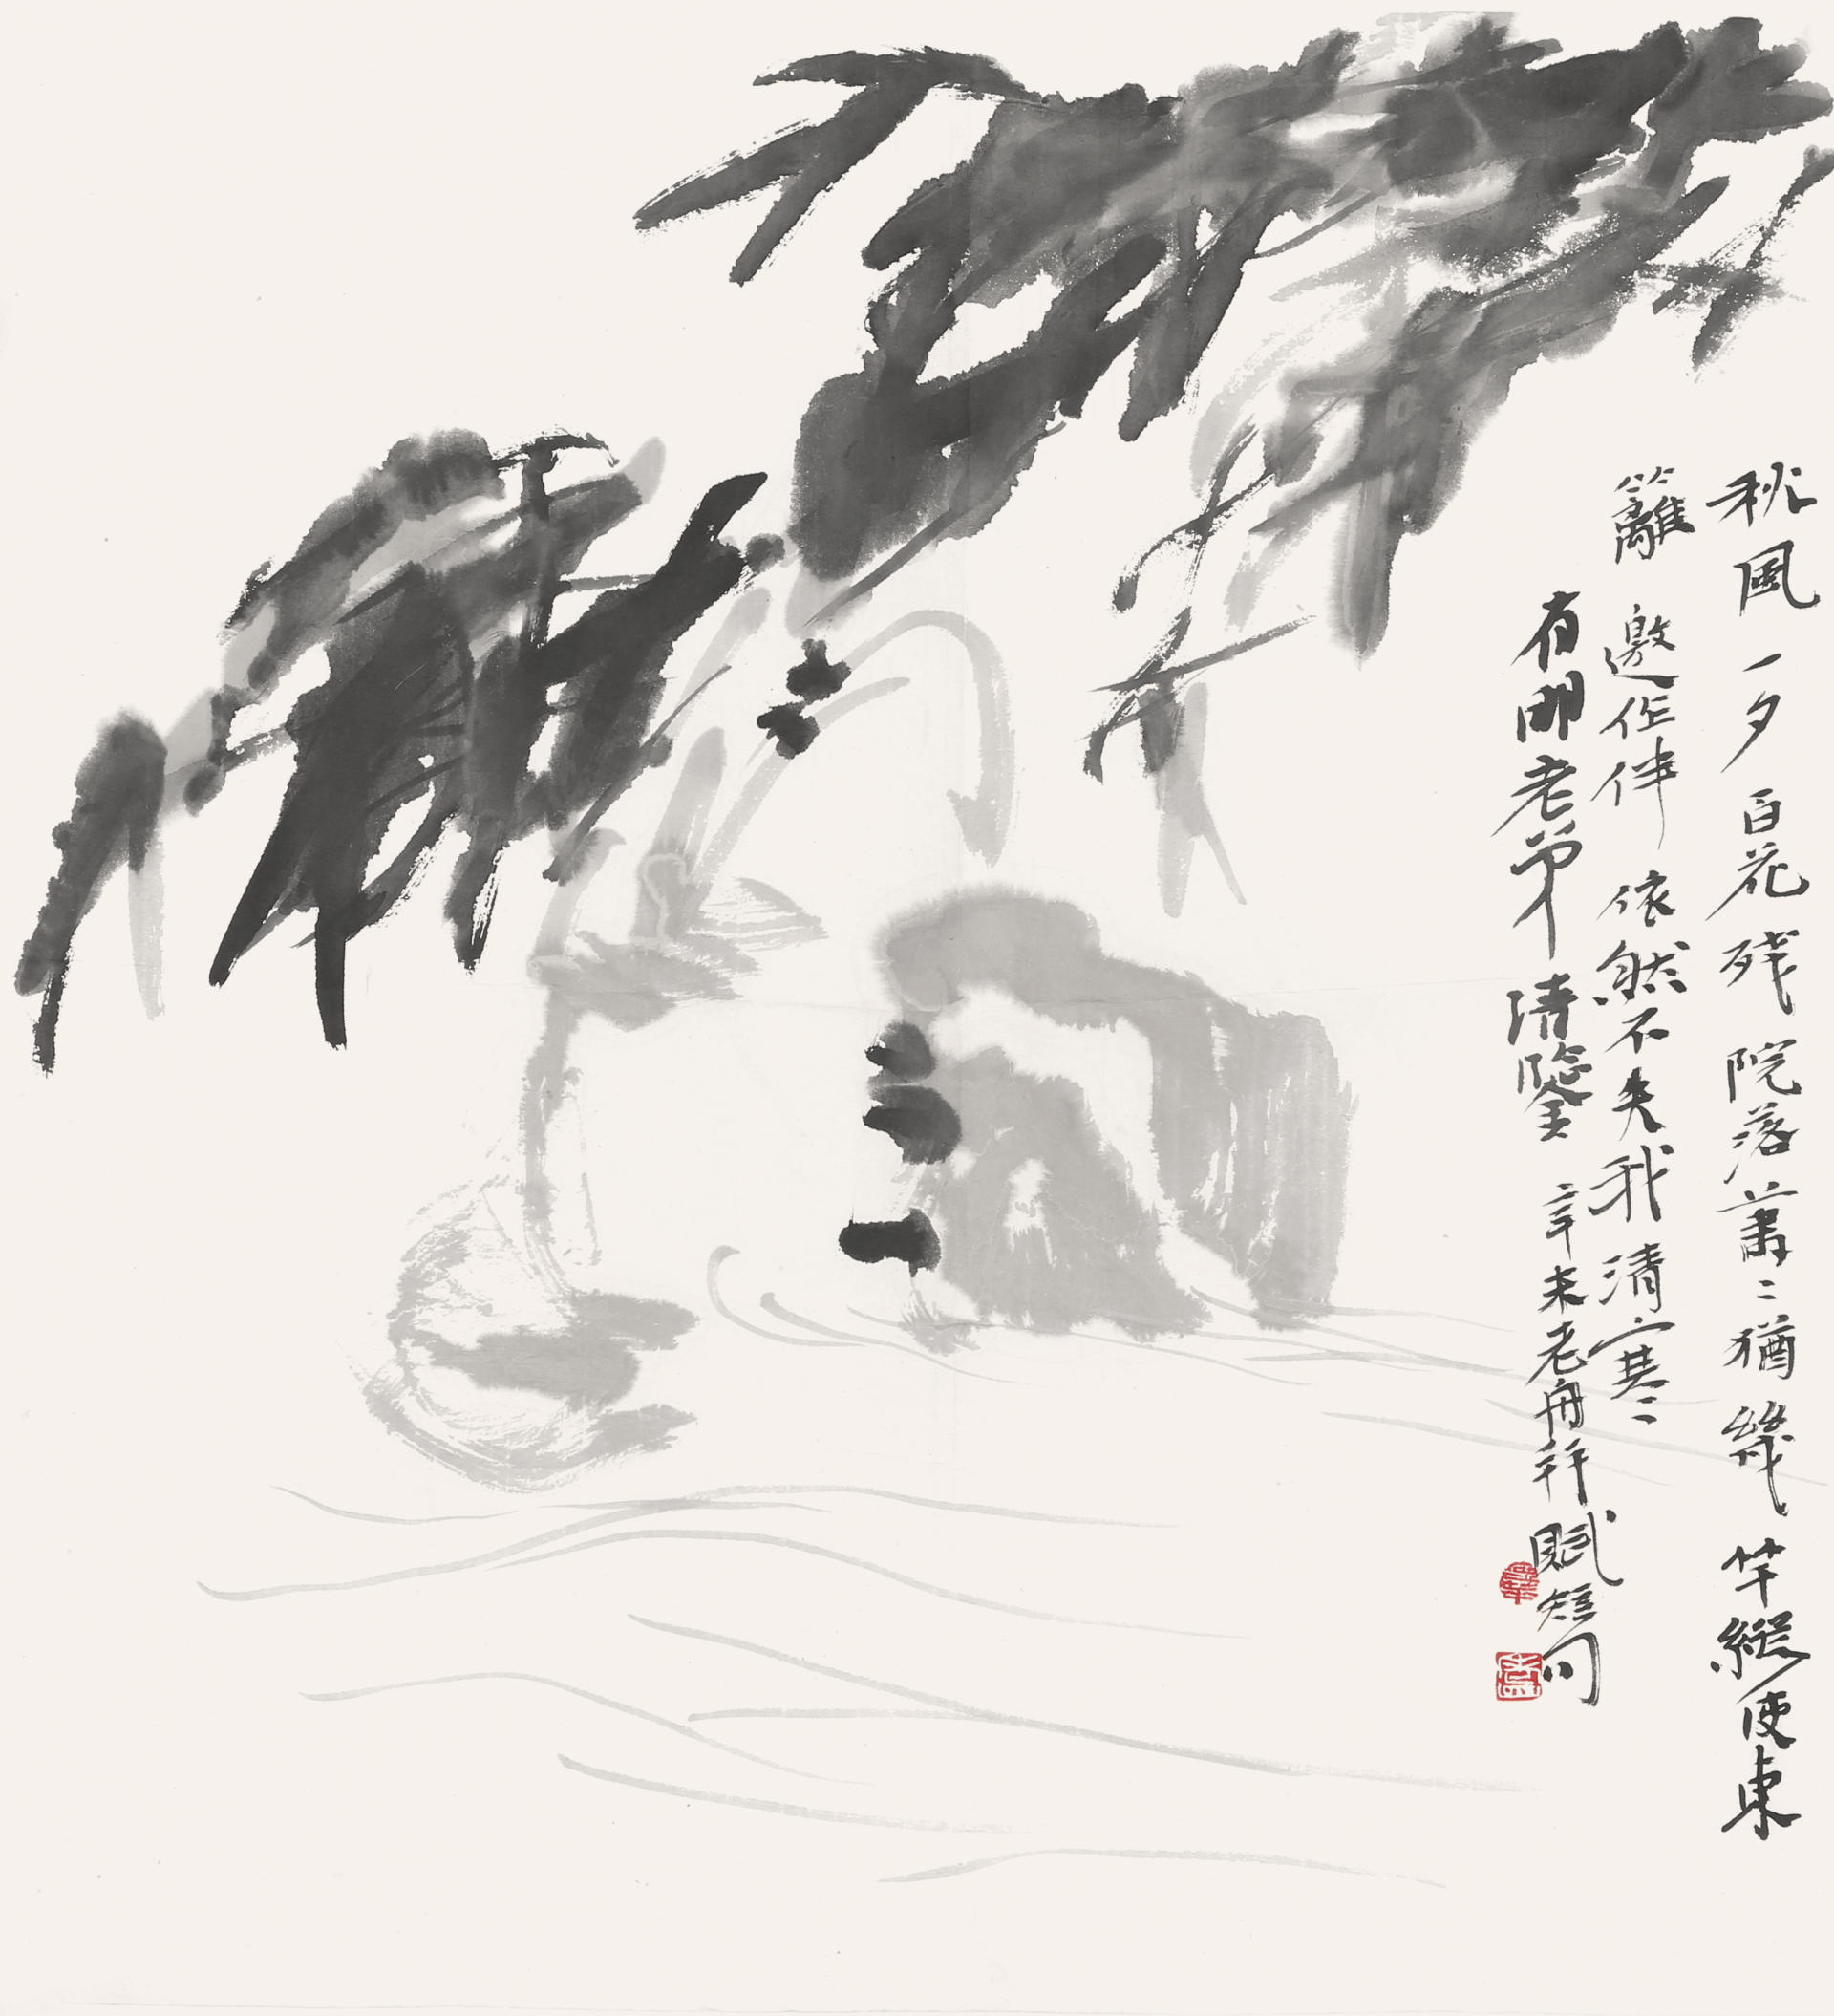 秋風一夕百花残院落蕭〻猶幾竿縱使東
籬邀作伴依然不失我清寒
有明老弟清鑒 辛未老舟并賦短句